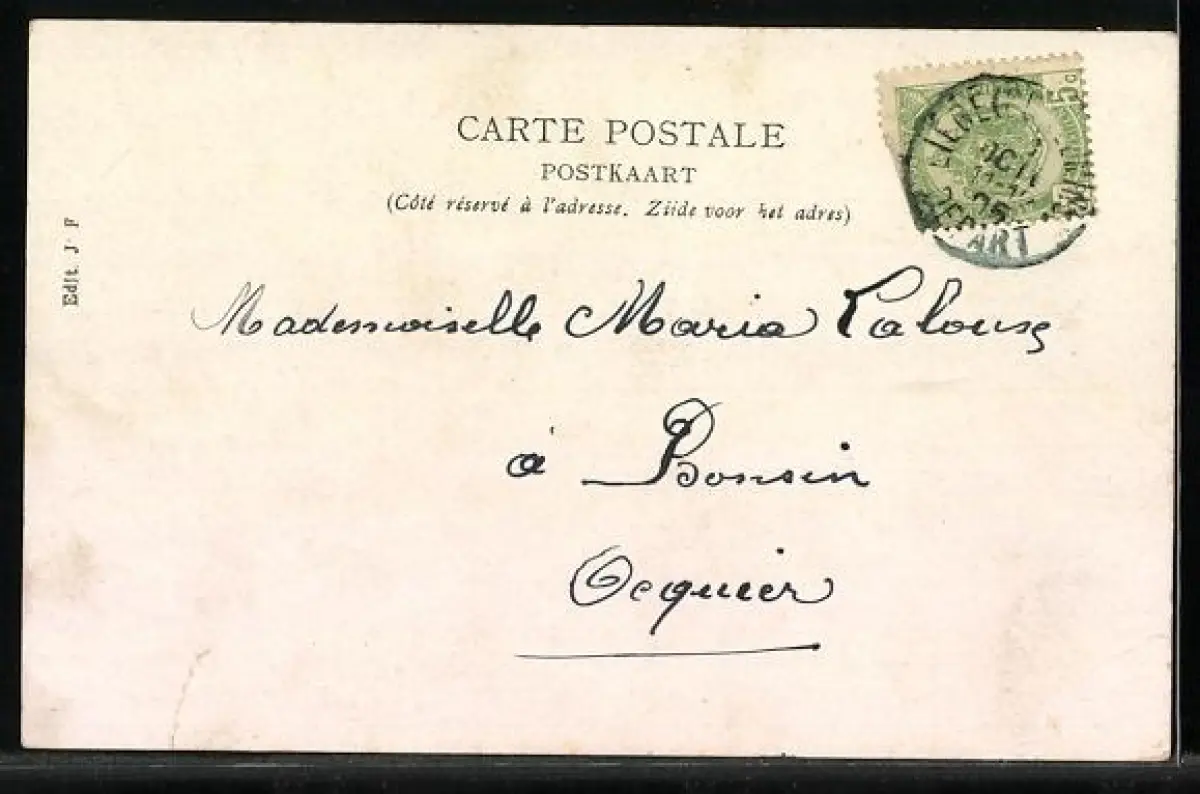 CARTE POSTALE
POSTKAART
(Côté réservé à l'adresse. Zijde voor het adres)
Edit. J F
5
LIEGE
OCT
DEPART
Mademoiselle Maria
à Bonsin
Ocquier